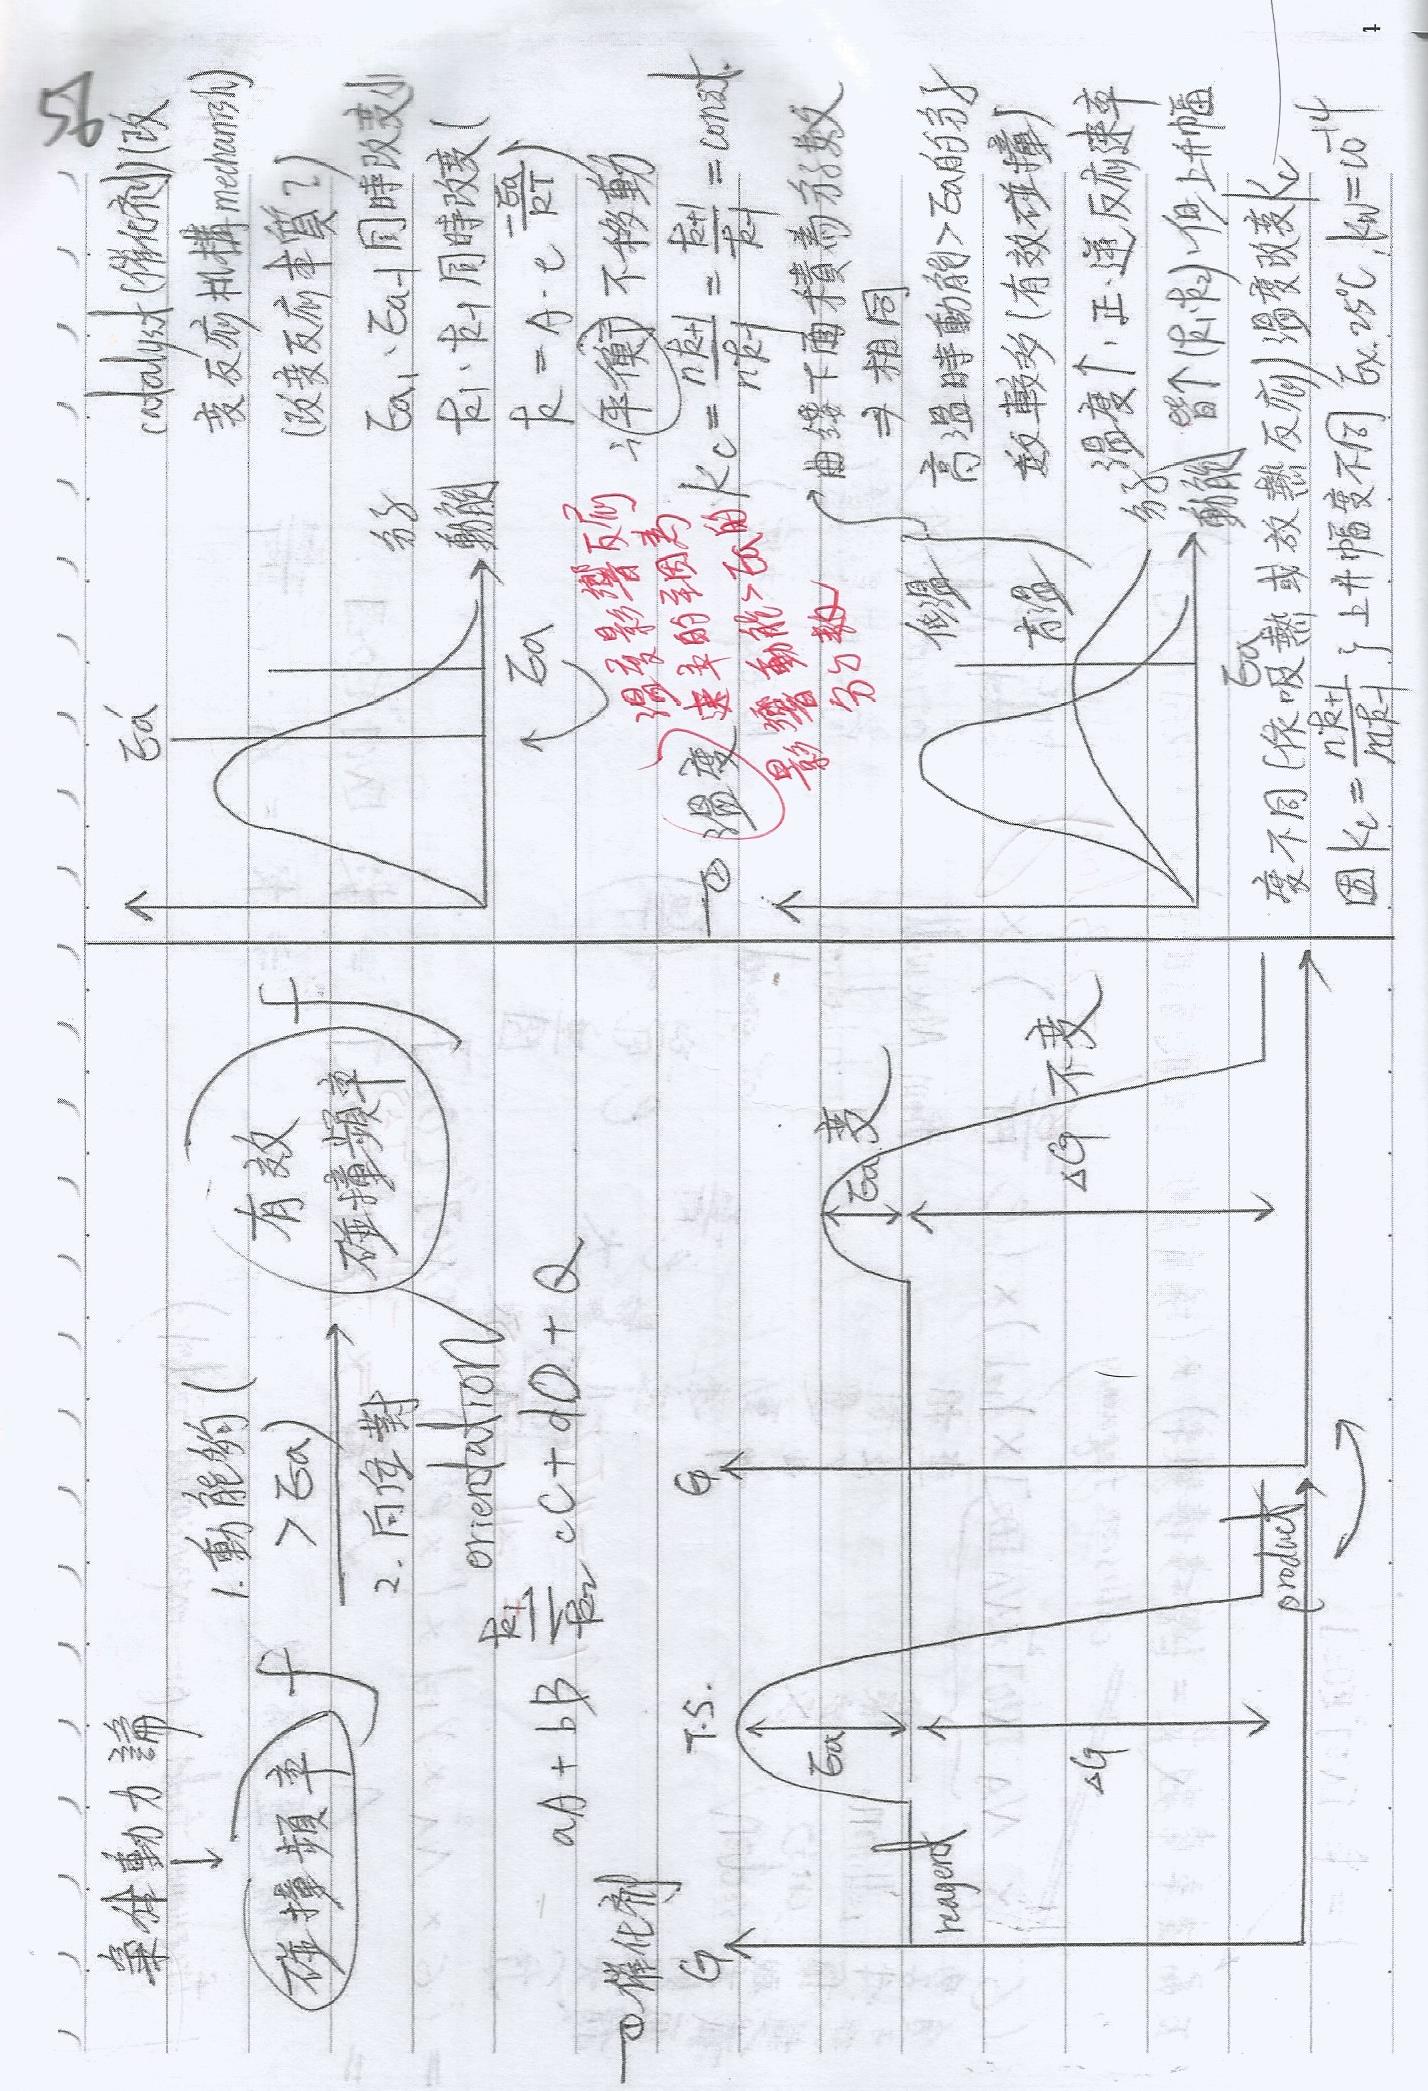 56
氣体動力論
↓
碰撞頻率 f
1. 動能夠(
> Ea)
2. 向位對
orientation
有效
碰撞頻率 f
aA + bB k1 k2 cC + dD + Q
①催化剤
G
T.S.
Ea
reagent
ΔG
product
G
Ea 變
ΔG 不變
Ea'
分子
動能
Ea
catalyst(催化剤)(改
變反應机構 mechanism)
(改變反應本質?)
Ea1、Ea-1 同時改變)
k1、k-1 同時改變(
k = A·e^(-Ea/RT))
∴平衡 不移動
Kc = nk+1/nk-1 = k+1/k-1 = const.
② 溫度
溫度影響反應
速率的主因為
影響動能>Ea的
分子數
曲線下面積為分子數
⇒ 相同
低溫
高溫
分子
動能
Ea
高溫時動能>Ea的分子
數較多(有效碰撞)
溫度↑,正、逆反應速率
皆↑(k1、k2),但上升幅
度不同(依吸熱或放熱反應)溫度改變Kc
因Kc = nk+1/mk-1 ; 上升幅度不同 Ex. 25°C, Kw=10^-14
1